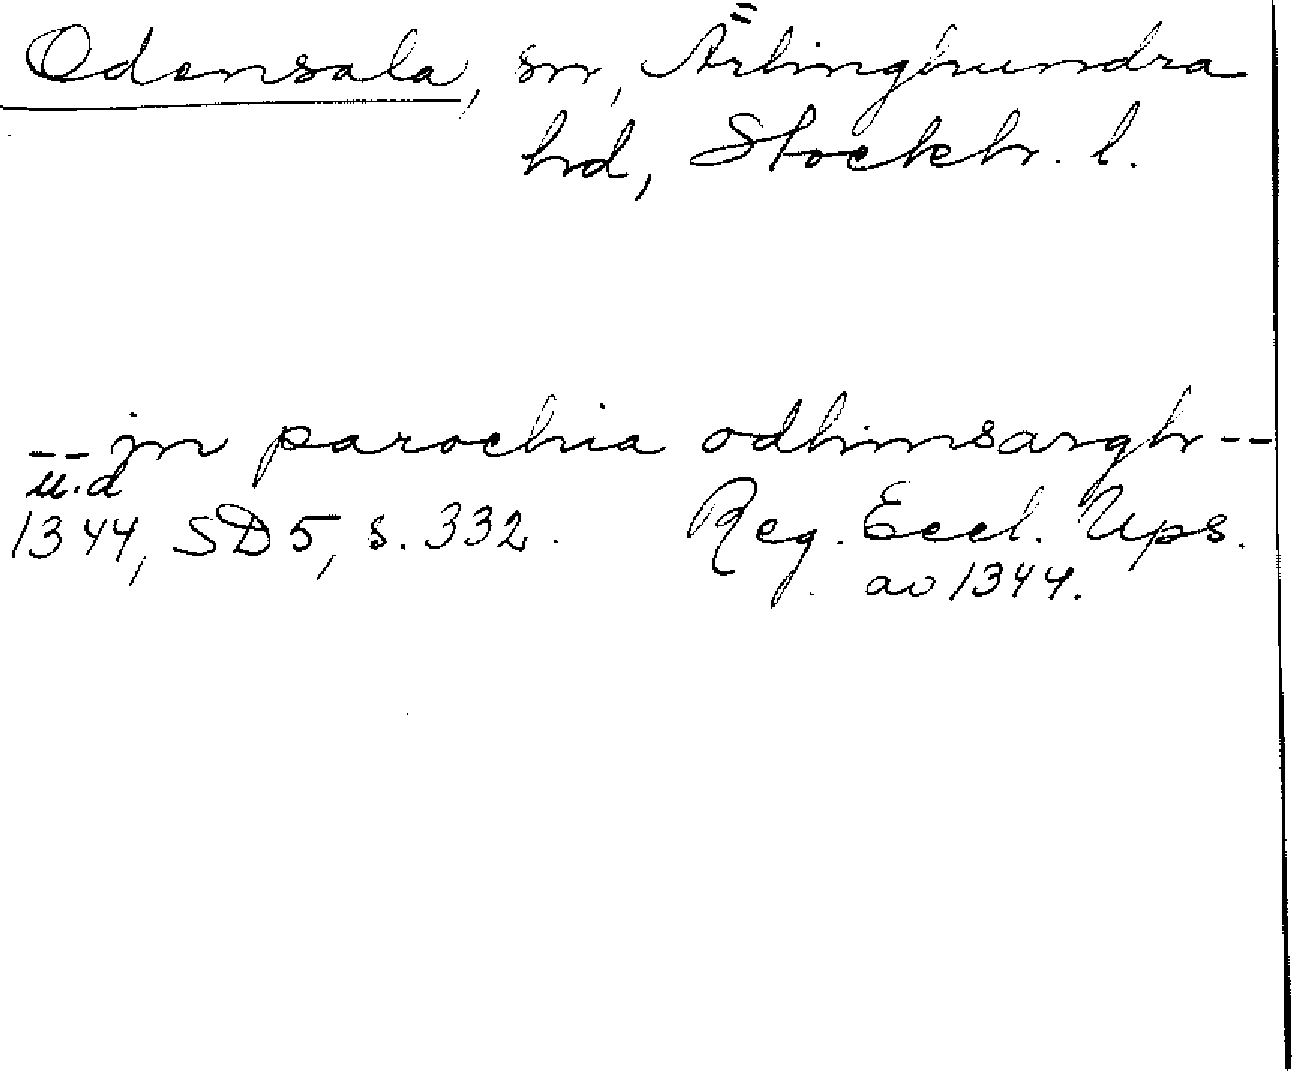 Odensala, sn, Ärlinghundra
hd, Stockh. l.
-- jn parochia odhinsargh --
u.d
1344, SD 5, s. 332. Reg. Eccl. Ups.
ao 1344.